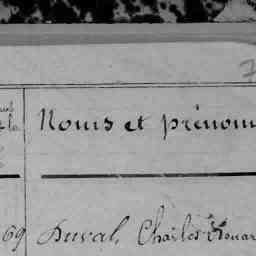 7
Noms et prénom
la
69 Duval Charles Edouar